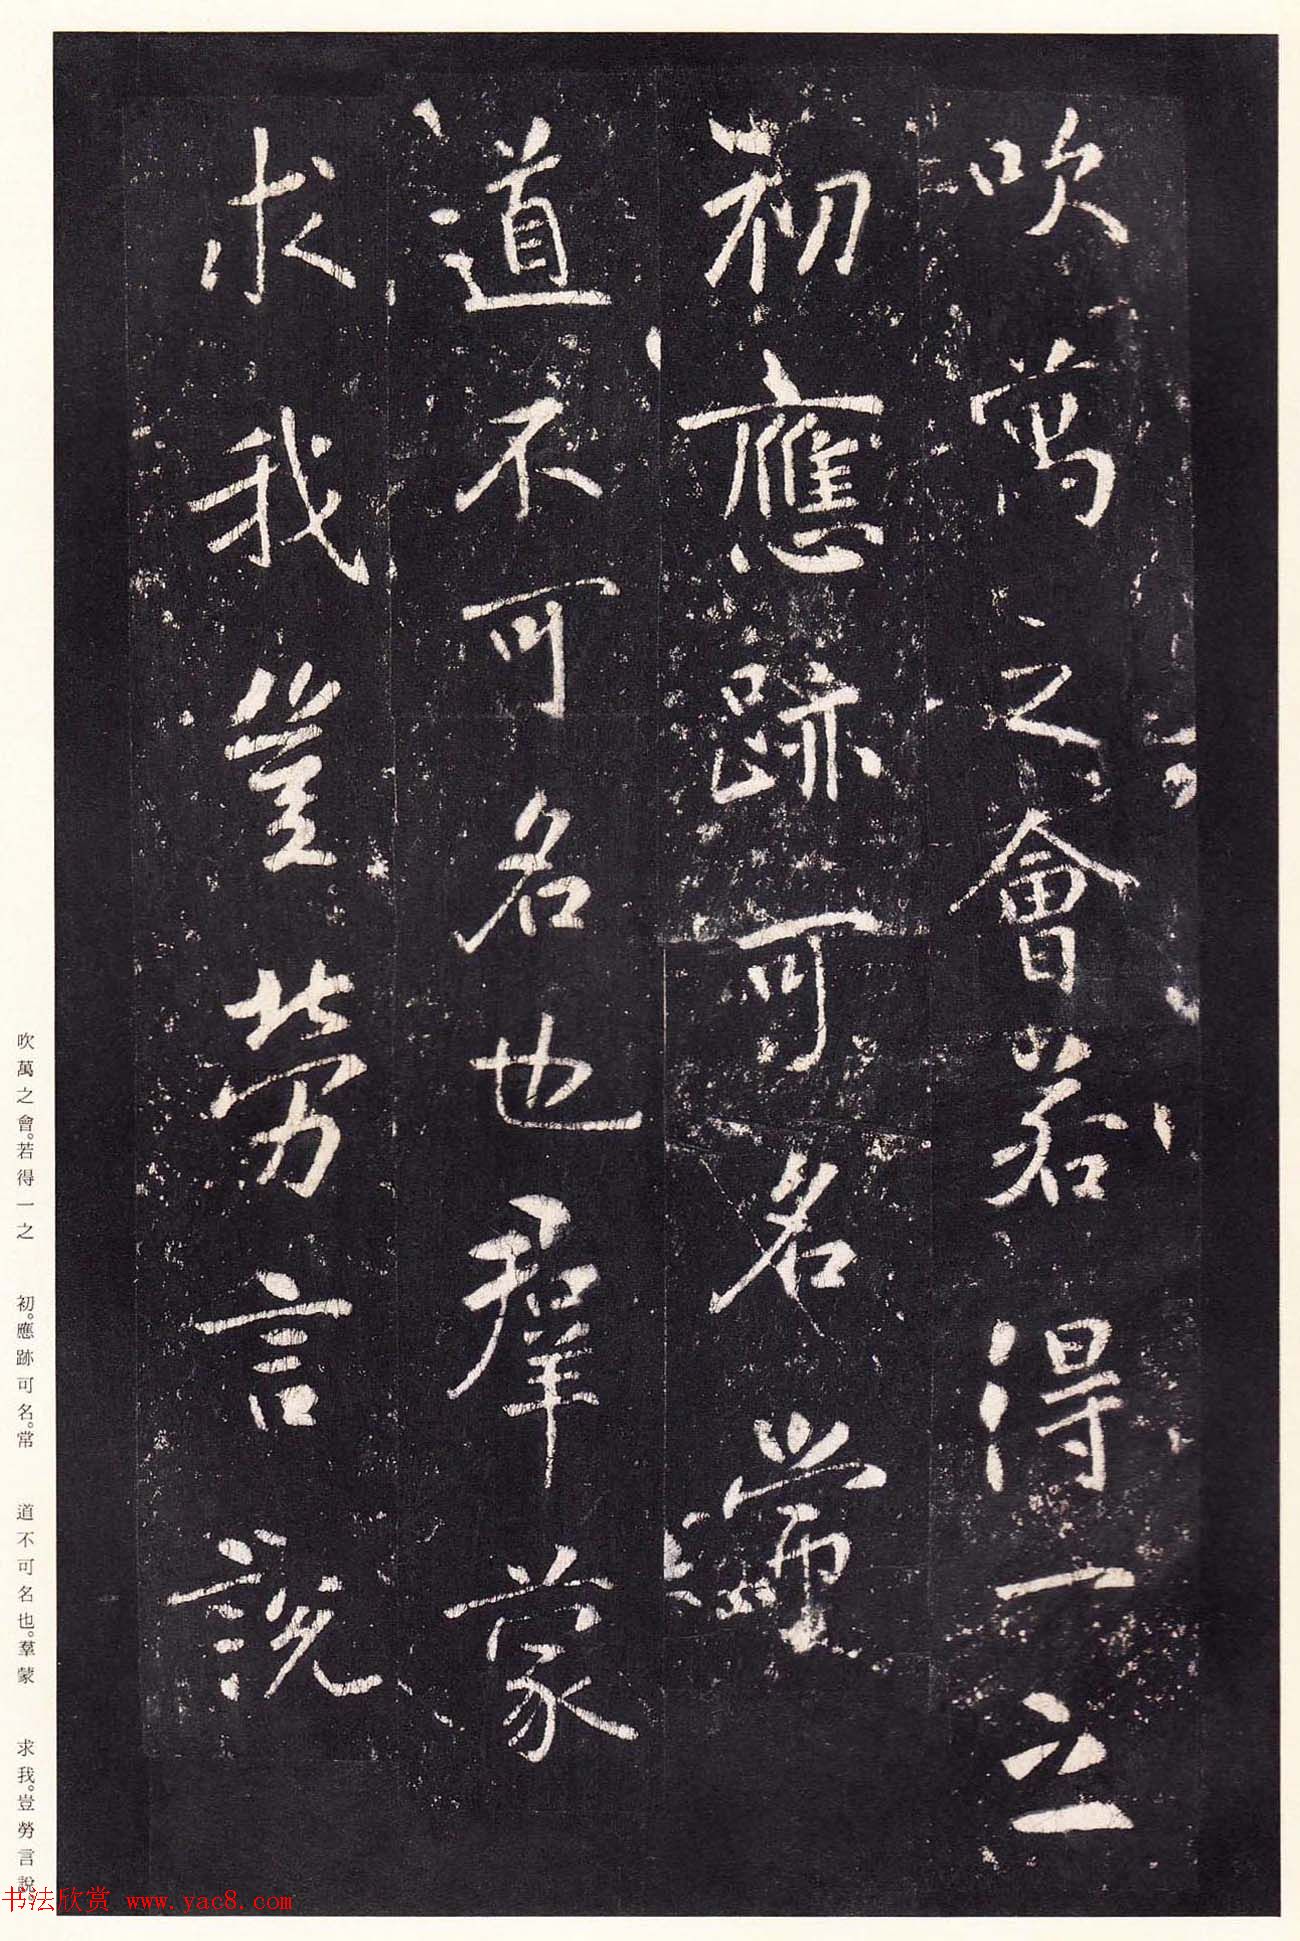 吹萬之會若得一之
初應跡可名常
道不可名也羣蒙
求我豈勞言說
吹萬之會。若得一之 初。應跡可名。常 道不可名也。羣蒙 求我。豈勞言說。
书法欣赏 www.yac8.com